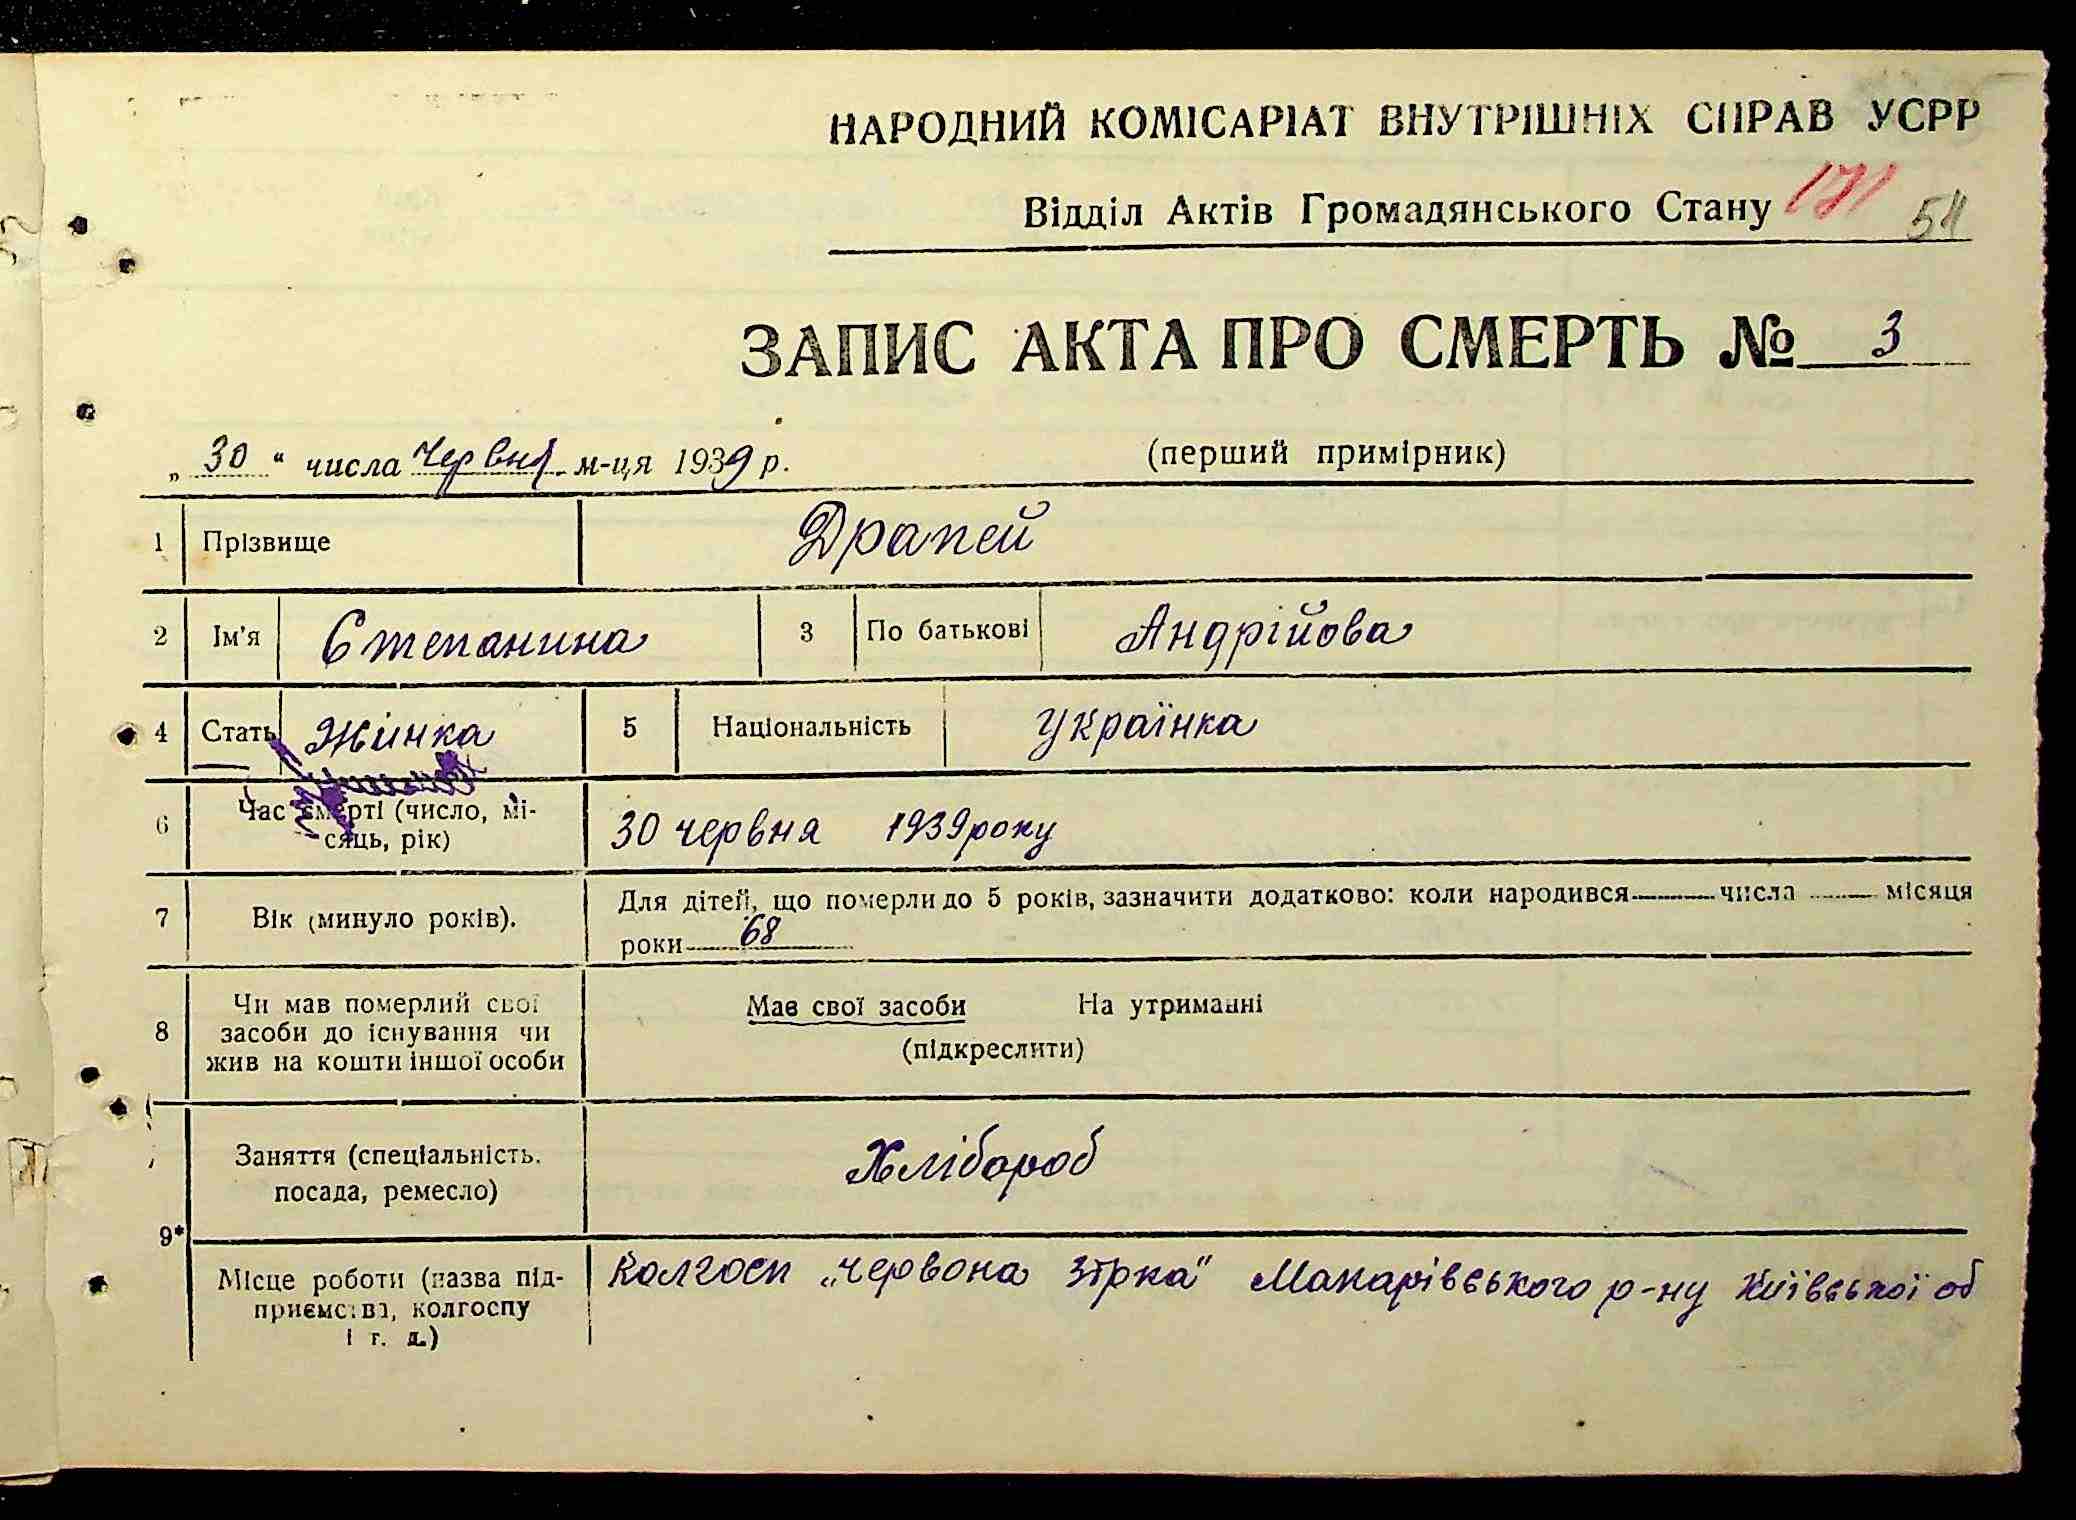 НАРОДНИЙ КОМІСАРІАТ ВНУТРІШНІХ СПРАВ УСРР
Відділ Актів Громадянського Стану 171 54
ЗАПИС АКТА ПРО СМЕРТЬ № 3
„ 30 “ числа Червня м-ця 1939 р. (перший примірник)
1 Прізвище Драпей
2 Ім'я Степанина 3 По батькові Андрійова
4 Стать Жинка 5 Національність Українка
6 Час смерті (число, мі-
сяць, рік) 30 червня 1939 року
7 Вік (минуло років). Для дітей, що померли до 5 років, зазначити додатково: коли народився числа місяця
роки 68
8 Чи мав померлий свої
засоби до існування чи
жив на кошти іншої особи
Має свої засоби На утриманні
(підкреслити)
9* Заняття (спеціальність,
посада, ремесло) Хлібороб
Місце роботи (назва під-
приємства, колгоспу
і г. д.)
Колгосп „Червона Зірка" Макарівського р-ну Київської об